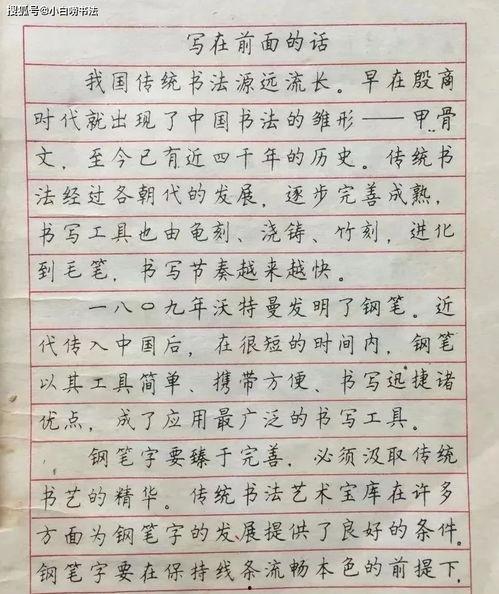 搜狐号@小白唠书法
写在前面的话
我国传统书法源远流长。早在殷商
时代就出现了中国书法的雏形——甲骨
文，至今已有近四千年的历史。传统书
法经过各朝代的发展，逐步完善成熟，
书写工具也由龟刻、浇铸、竹刻，进化
到毛笔，书写节奏越来越快。
一八〇九年沃特曼发明了钢笔。近
代传入中国后，在很短的时间内，钢笔
以其工具简单、携带方便、书写迅捷诸
优点，成了应用最广泛的书写工具。
钢笔字要臻于完善，必须汲取传统
书艺的精华。传统书法艺术宝库在许多
方面为钢笔字的发展提供了良好的条件。
钢笔字要在保持线条流畅本色的前提下，